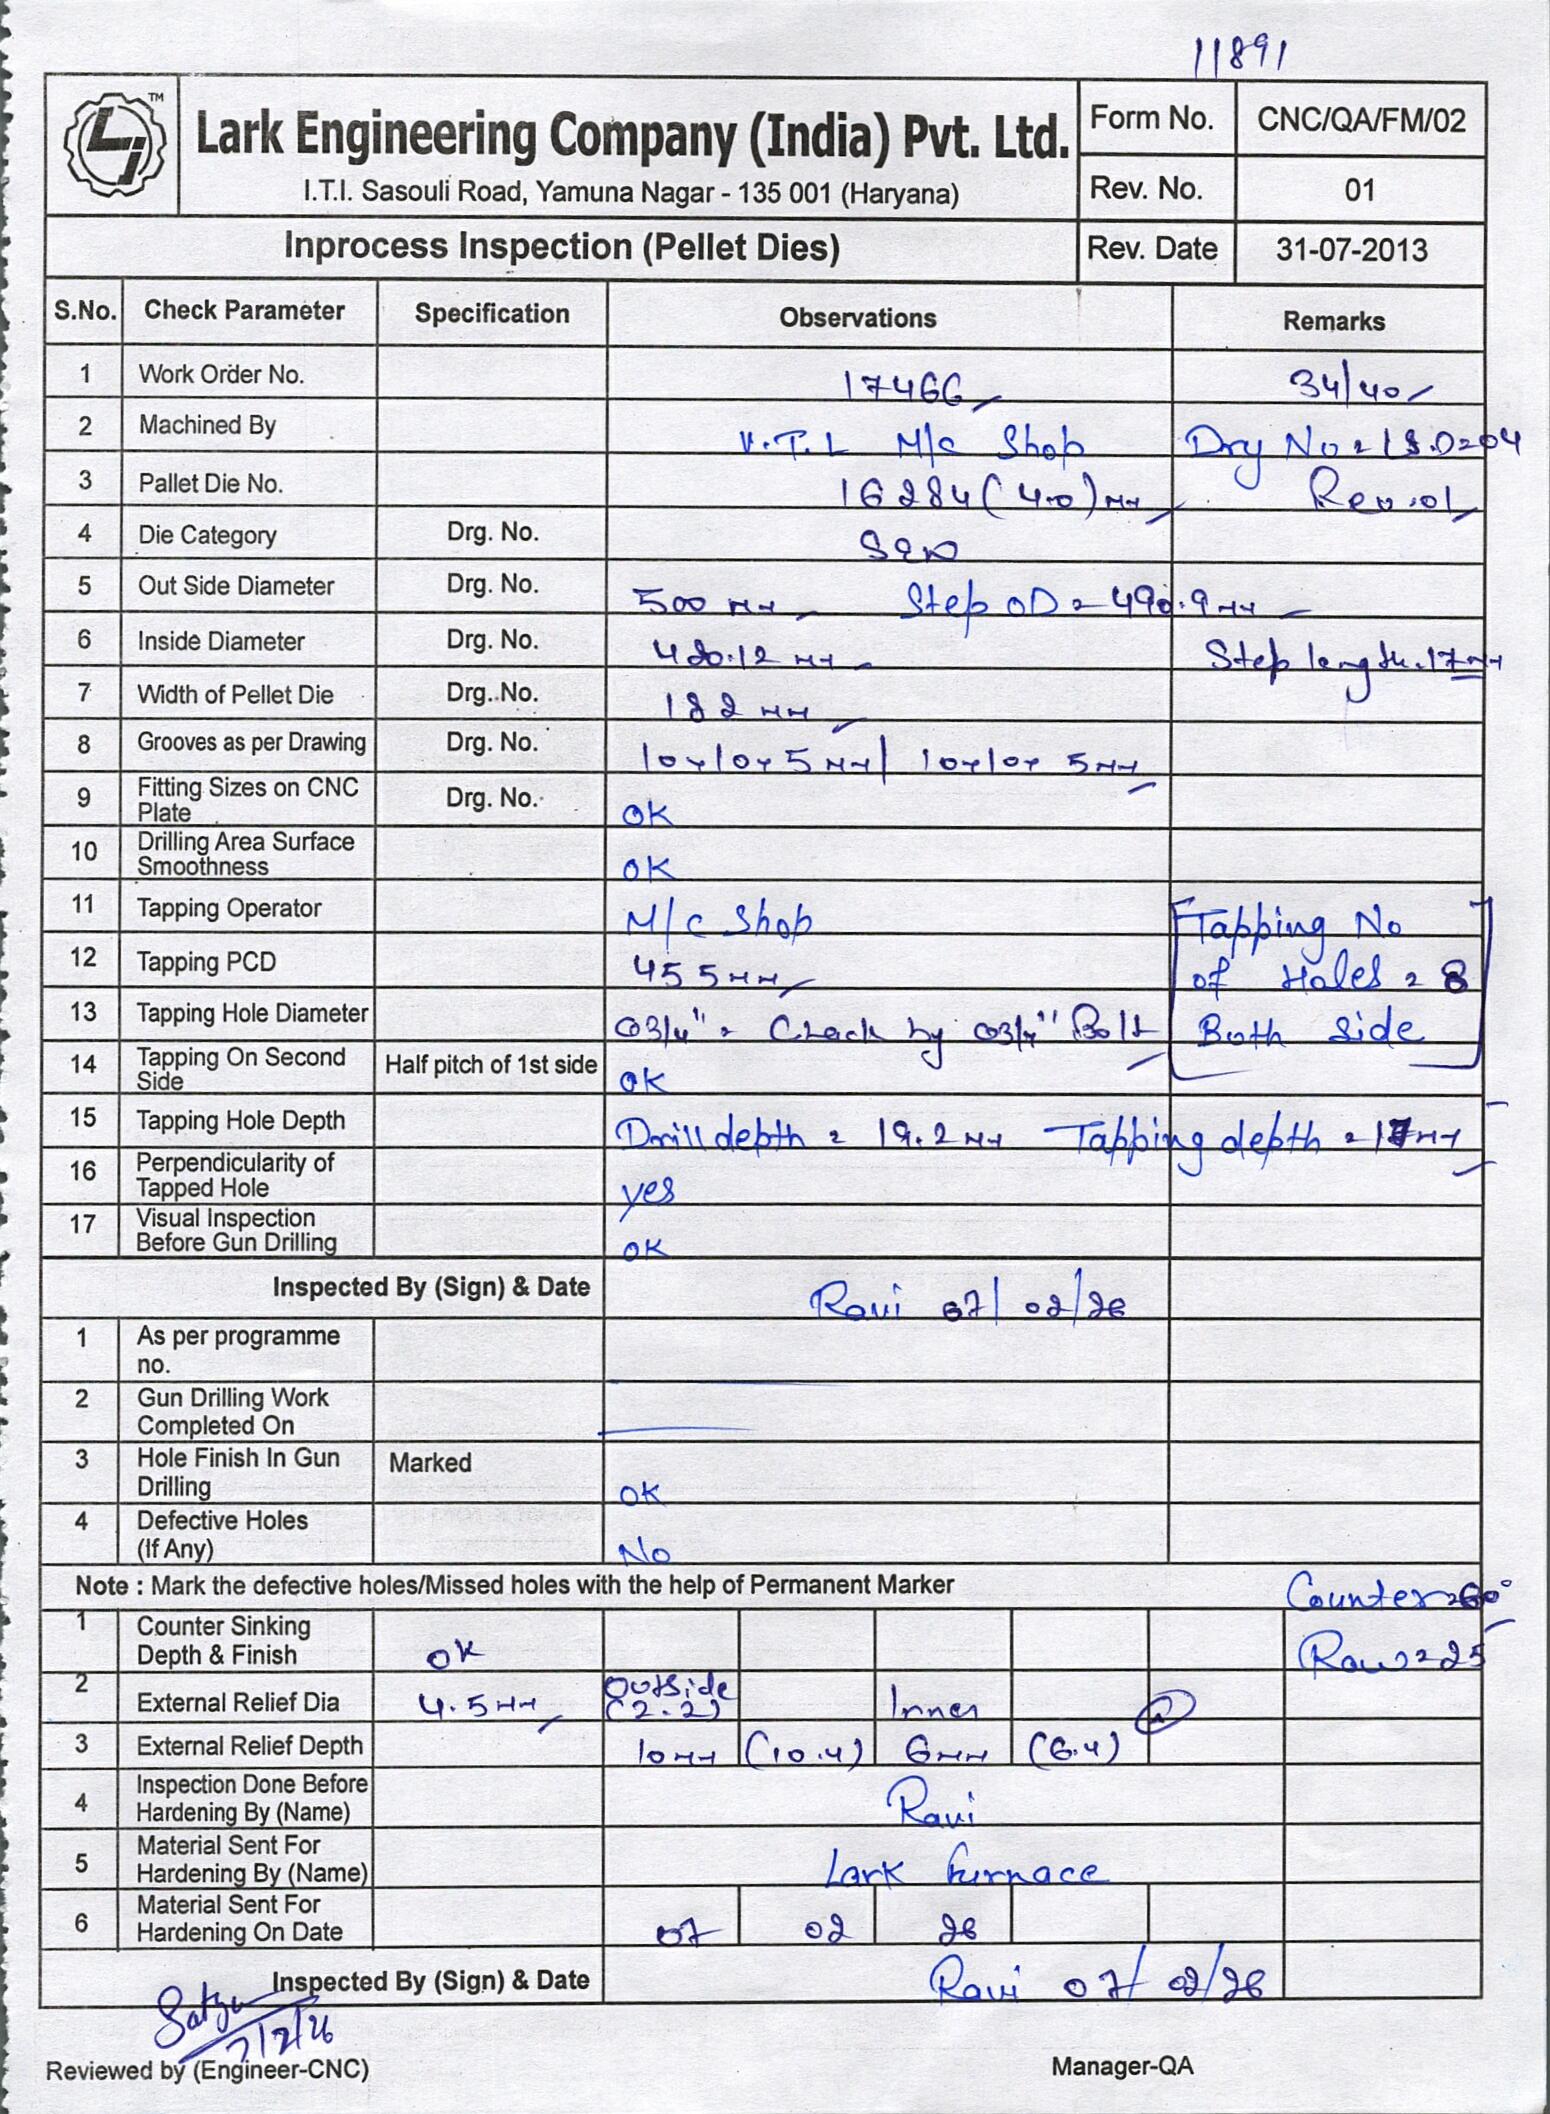 11891
LJ TM
Lark Engineering Company (India) Pvt. Ltd.
I.T.I. Sasouli Road, Yamuna Nagar - 135 001 (Haryana)
Form No. CNC/QA/FM/02
Rev. No. 01
Inprocess Inspection (Pellet Dies) Rev. Date 31-07-2013
S.No. Check Parameter Specification Observations Remarks
1 Work Order No. 17466 34/40
2 Machined By V.T.L M/c Shop Drg No = LS.D=04
3 Pallet Die No. 16284 (4.0) mm Rev.01
4 Die Category Drg. No.
5 Out Side Diameter Drg. No. 500 mm Step OD = 490.9 mm
6 Inside Diameter Drg. No. 420.12 mm Step length. 17 mm
7 Width of Pellet Die Drg. No. 182 mm
8 Grooves as per Drawing Drg. No. 10x10x5 mm / 10x10x5 mm
9 Fitting Sizes on CNC Plate Drg. No. OK
10 Drilling Area Surface Smoothness OK
11 Tapping Operator M/c Shop Tapping No
12 Tapping PCD 455 mm of Holes = 8
13 Tapping Hole Diameter Ø3/4" = Check by Ø3/4" Bolt Both side
14 Tapping On Second Side Half pitch of 1st side OK
15 Tapping Hole Depth Drill depth = 19.2 mm Tapping depth = 17 mm
16 Perpendicularity of Tapped Hole yes
17 Visual Inspection Before Gun Drilling OK
Inspected By (Sign) & Date Ravi 07/02/26
1 As per programme no.
2 Gun Drilling Work Completed On
3 Hole Finish In Gun Drilling Marked OK
4 Defective Holes (If Any) No
Note : Mark the defective holes/Missed holes with the help of Permanent Marker Counter=60°
1 Counter Sinking Depth & Finish OK Rows=25
2 External Relief Dia 4.5 mm Outside (2.2) Inner
3 External Relief Depth 10 mm (10.4) 6 mm (6.4)
4 Inspection Done Before Hardening By (Name) Ravi
5 Material Sent For Hardening By (Name) Lark furnace
6 Material Sent For Hardening On Date 07 02 26
Inspected By (Sign) & Date Ravi 07/02/26
7/2/26
Reviewed by (Engineer-CNC) Manager-QA